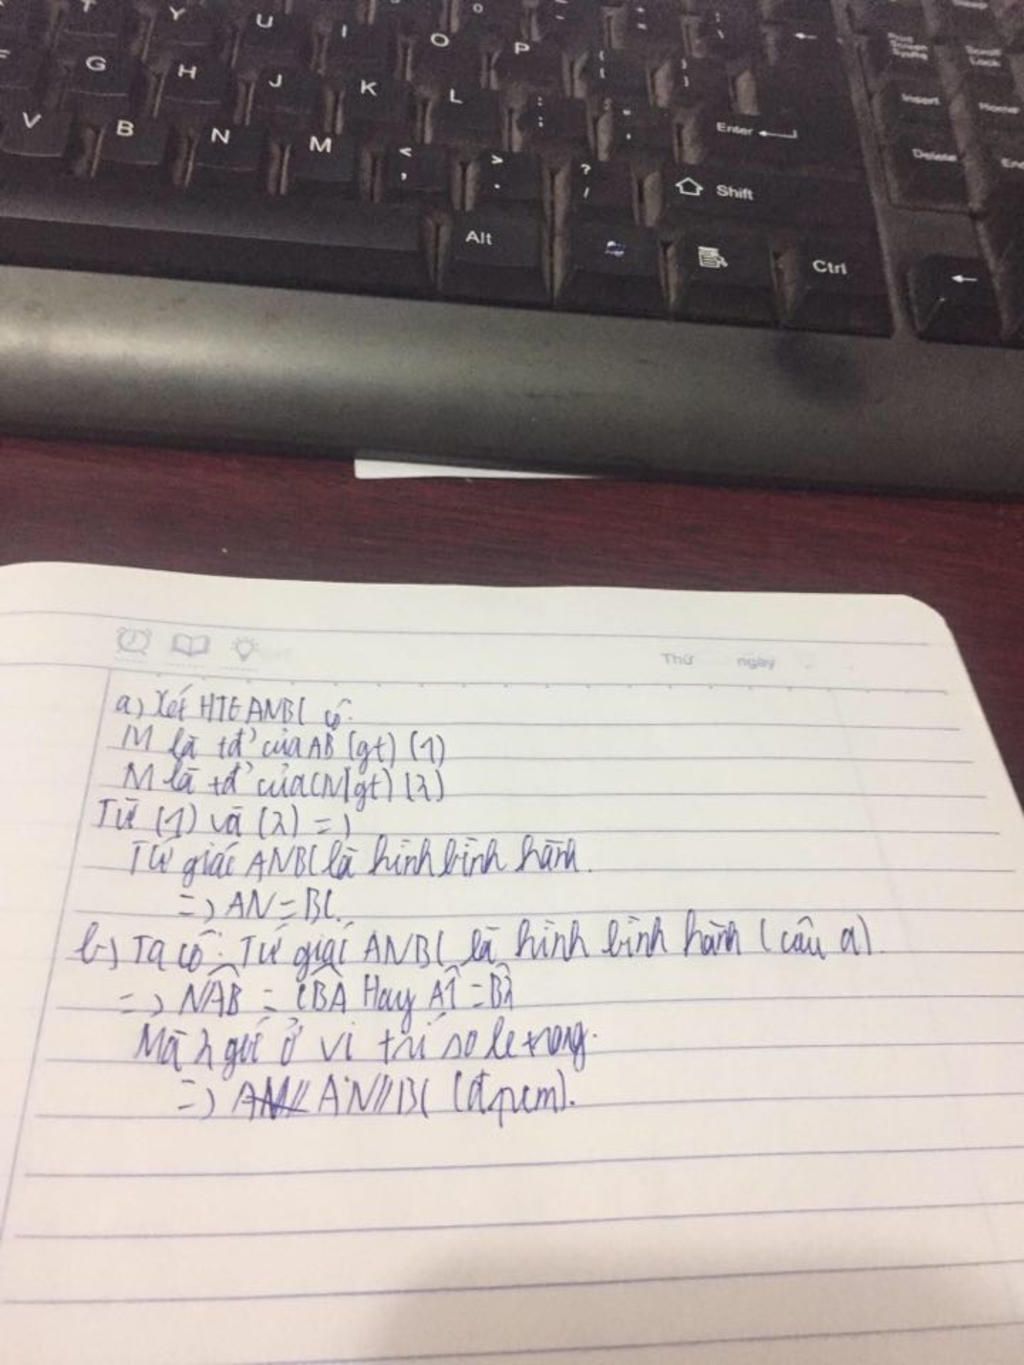 T Y U I O P
G H J K L Enter
V B N M < , > . ? / Shift
Alt Ctrl
Print Screen SysRq Scroll Lock
Insert Home
Delete End
Thứ ngày
a) Xét HTG ANBC có:
M là tđ' của AB (gt) (1)
M là tđ' của CN (gt) (2)
Từ (1) và (2) =)
Tứ giác ANBC là hình bình hành.
=) AN = BC.
b) Ta có: Tứ giác ANBC là hình bình hành (câu a).
=) NÂB = CB̂A Hay Â1 = B̂2
Mà 2 góc ở vị trí so le trong.
=) AN//BC (đpcm).